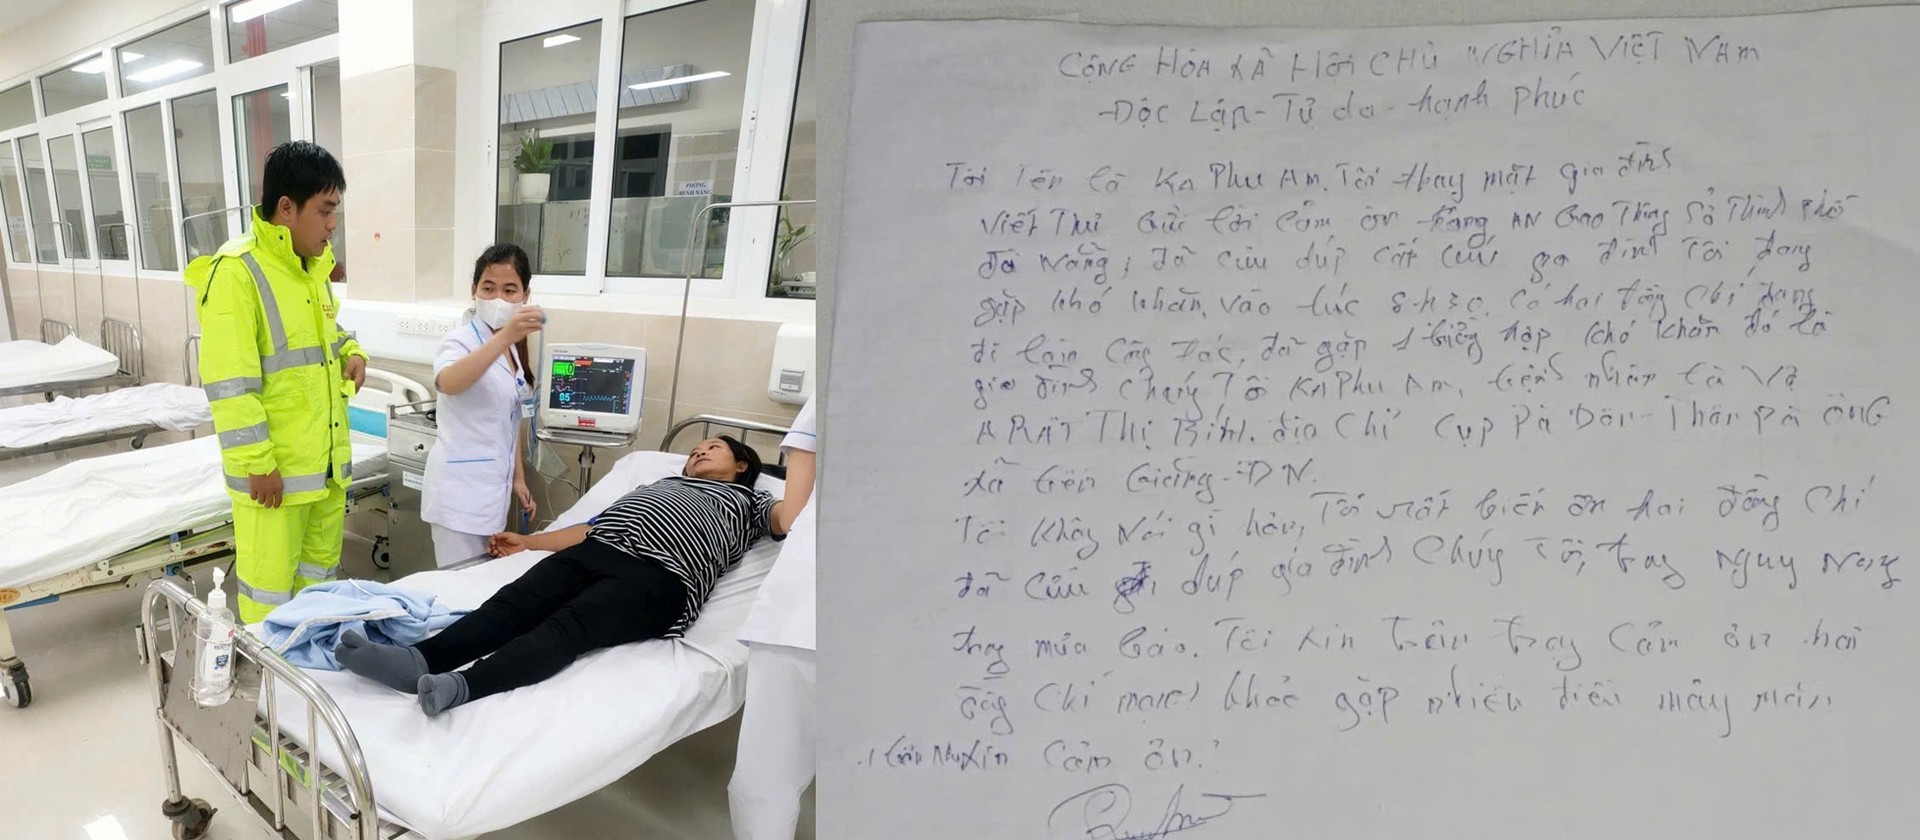 PHÒNG
BỆNH NẶNG
95
CỘNG HÒA XÃ HỘI CHỦ NGHĨA VIỆT NAM
-Độc Lập-Tự do-hạnh Phúc
Tôi Tên là KA Phu Am. Tôi thay mặt gia đình
Viết Thư Gửi lời cảm ơn AN Giao Thông Sở Thành Phố
đà Nẵng, đã cứu dúp gia đình Tôi đang
gặp khó khăn, vào lúc có hai đồng Chí đang
đi Công Tác, đã gặp 1 hợp khó khăn đó là
gia đình Chúng Tôi KA Phu Am, bệnh nhân là Vợ
A RẤT Thị Bính. địa Chỉ Cụp Pà Dôn-Thôn Pà ÔNG
xã ĐN.
Tôi Không Nói gì hơn, Tôi rất biết ơn hai đồng Chí
đã Cứu dúp gia đình Chúng Tôi, Nguy
mưa bão. Tôi xin Cảm ơn hai
đồng Chí mạnh khỏe gặp nhiều điều mây mắn
xin Cảm ơn.